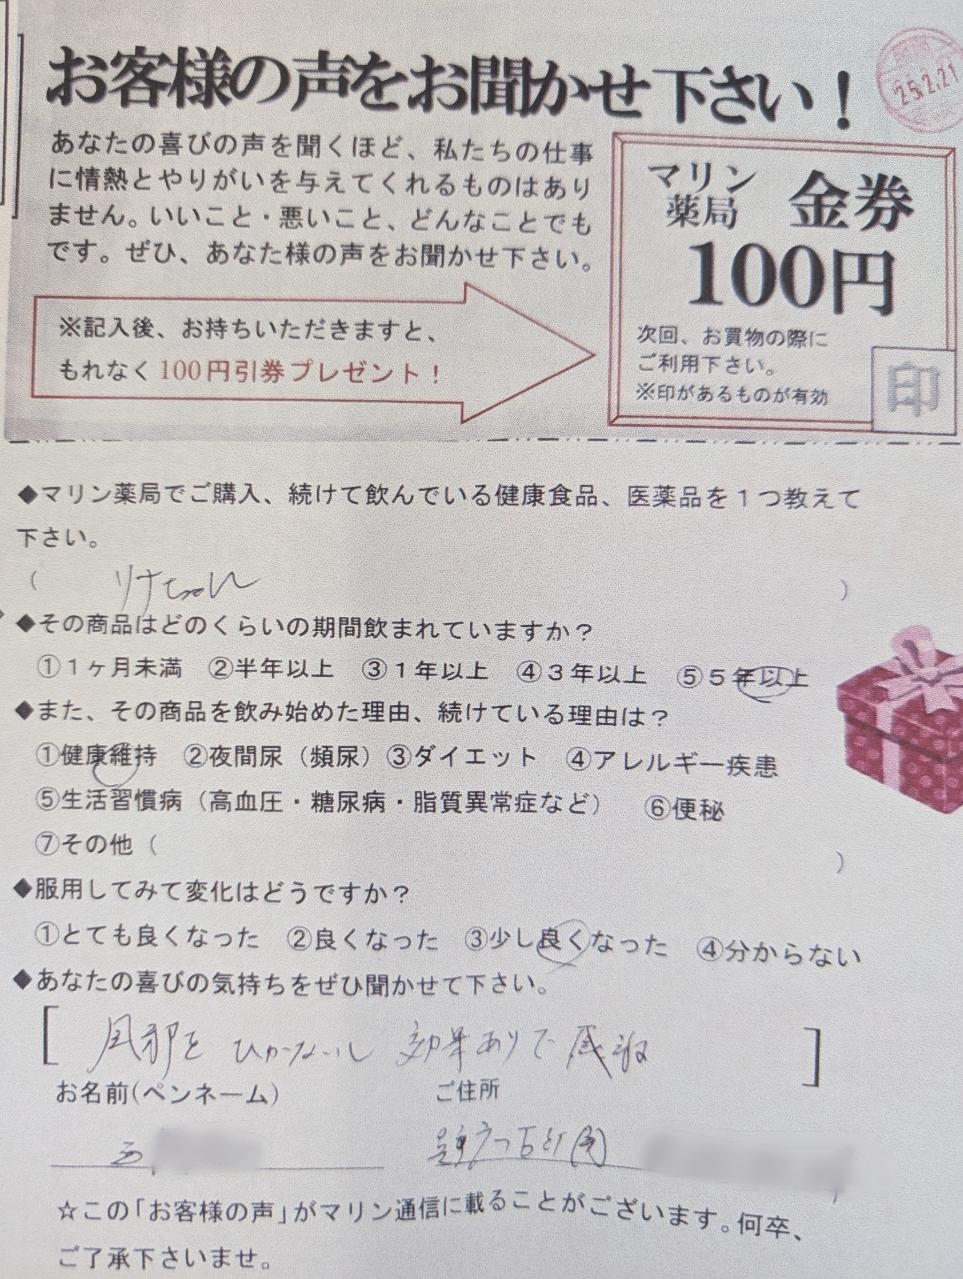 お客様の声をお聞かせ下さい！
25.2.21
あなたの喜びの声を聞くほど、私たちの仕事
に情熱とやりがいを与えてくれるものはあり
ません。いいこと・悪いこと、どんなことでも
です。ぜひ、あなた様の声をお聞かせ下さい。
※記入後、お持ちいただきますと、
もれなく100円引券プレゼント！
マリン薬局 金券
100円
次回、お買物の際に
ご利用下さい。
※印があるものが有効
印
◆マリン薬局でご購入、続けて飲んでいる健康食品、医薬品を１つ教えて
下さい。
（ ）
◆その商品はどのくらいの期間飲まれていますか？
①１ヶ月未満 ②半年以上 ③１年以上 ④３年以上 ⑤５年以上
◆また、その商品を飲み始めた理由、続けている理由は？
①健康維持 ②夜間尿（頻尿）③ダイエット ④アレルギー疾患
⑤生活習慣病（高血圧・糖尿病・脂質異常症など） ⑥便秘
⑦その他（ ）
◆服用してみて変化はどうですか？
①とても良くなった ②良くなった ③少し良くなった ④分からない
◆あなたの喜びの気持ちをぜひ聞かせて下さい。
［風邪を ひかないし 効果ありで 感謝］
お名前(ペンネーム) ご住所
☆この「お客様の声」がマリン通信に載ることがございます。何卒、
ご了承下さいませ。